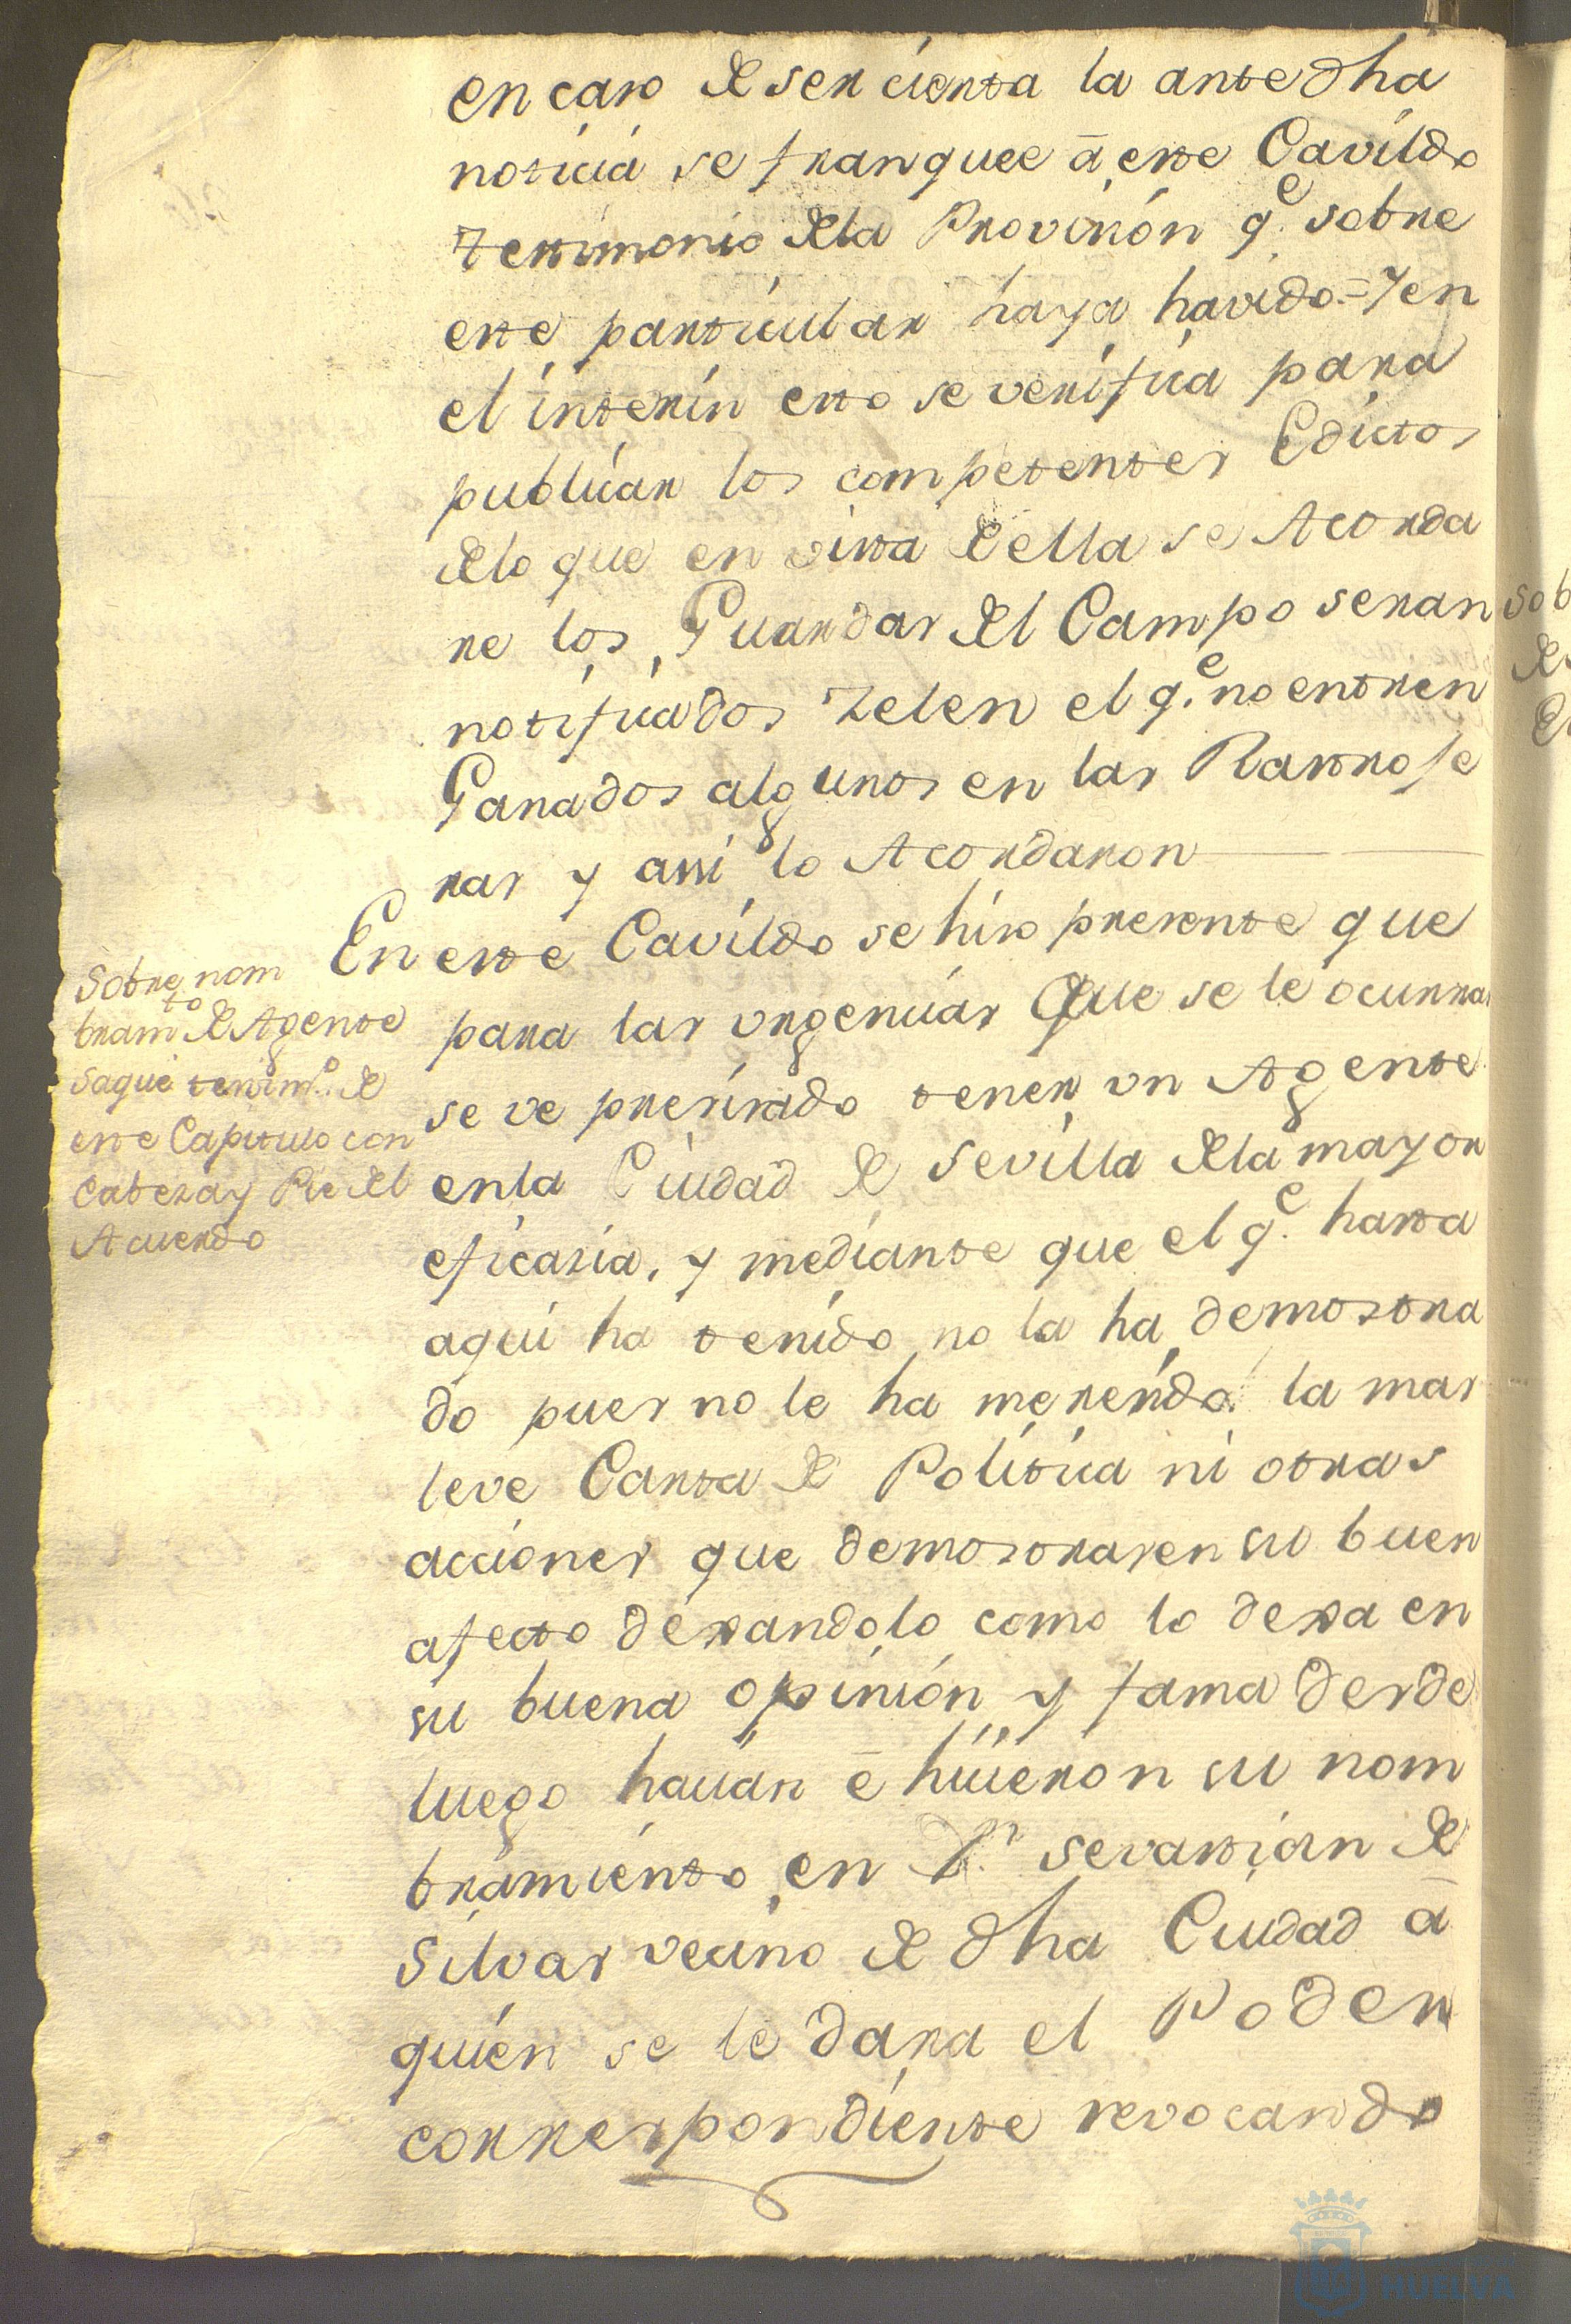 en caso de ser cierta la antedha
noticia se franquee ā este Cavildo
testimonio dela Provision q.e sobre
este particular haya havido = Y en
el interin esto se verifica para
publicar los competentes Edictos
delo que en vista de ella se Acorda
re los Guardas del Campo seran
notificados Zelen el q.e no entren
Ganados algunos en las Rastroje
ras y assi lo Acordaron
Sobre nom
bram.to de Agente
Saqué testim.o de
este Capitulo con
Cabeza y Pie del
Acuerdo
En este Cavildo se hizo presente que
para las urgencias que se le ocurran
se ve presisado tener un Agente
en la Ciudad de Sevilla dela mayor
eficasia, y mediante que el q.e hasta
aqui ha tenido no la ha demostra
do pues no le ha merecido la mas
leve Carta de Politica ni otras
acciones que demostrasen su buen
afecto dexandolo como lo dexa en
su buena opinion y fama desde
luego hacian ē hicieron su nom
bramiento en D.n Sevastian de
Silvas vecino de dha Ciudad ā
quien se le dara el Poder
correspondiente revocando
Sob
de
HUELVA